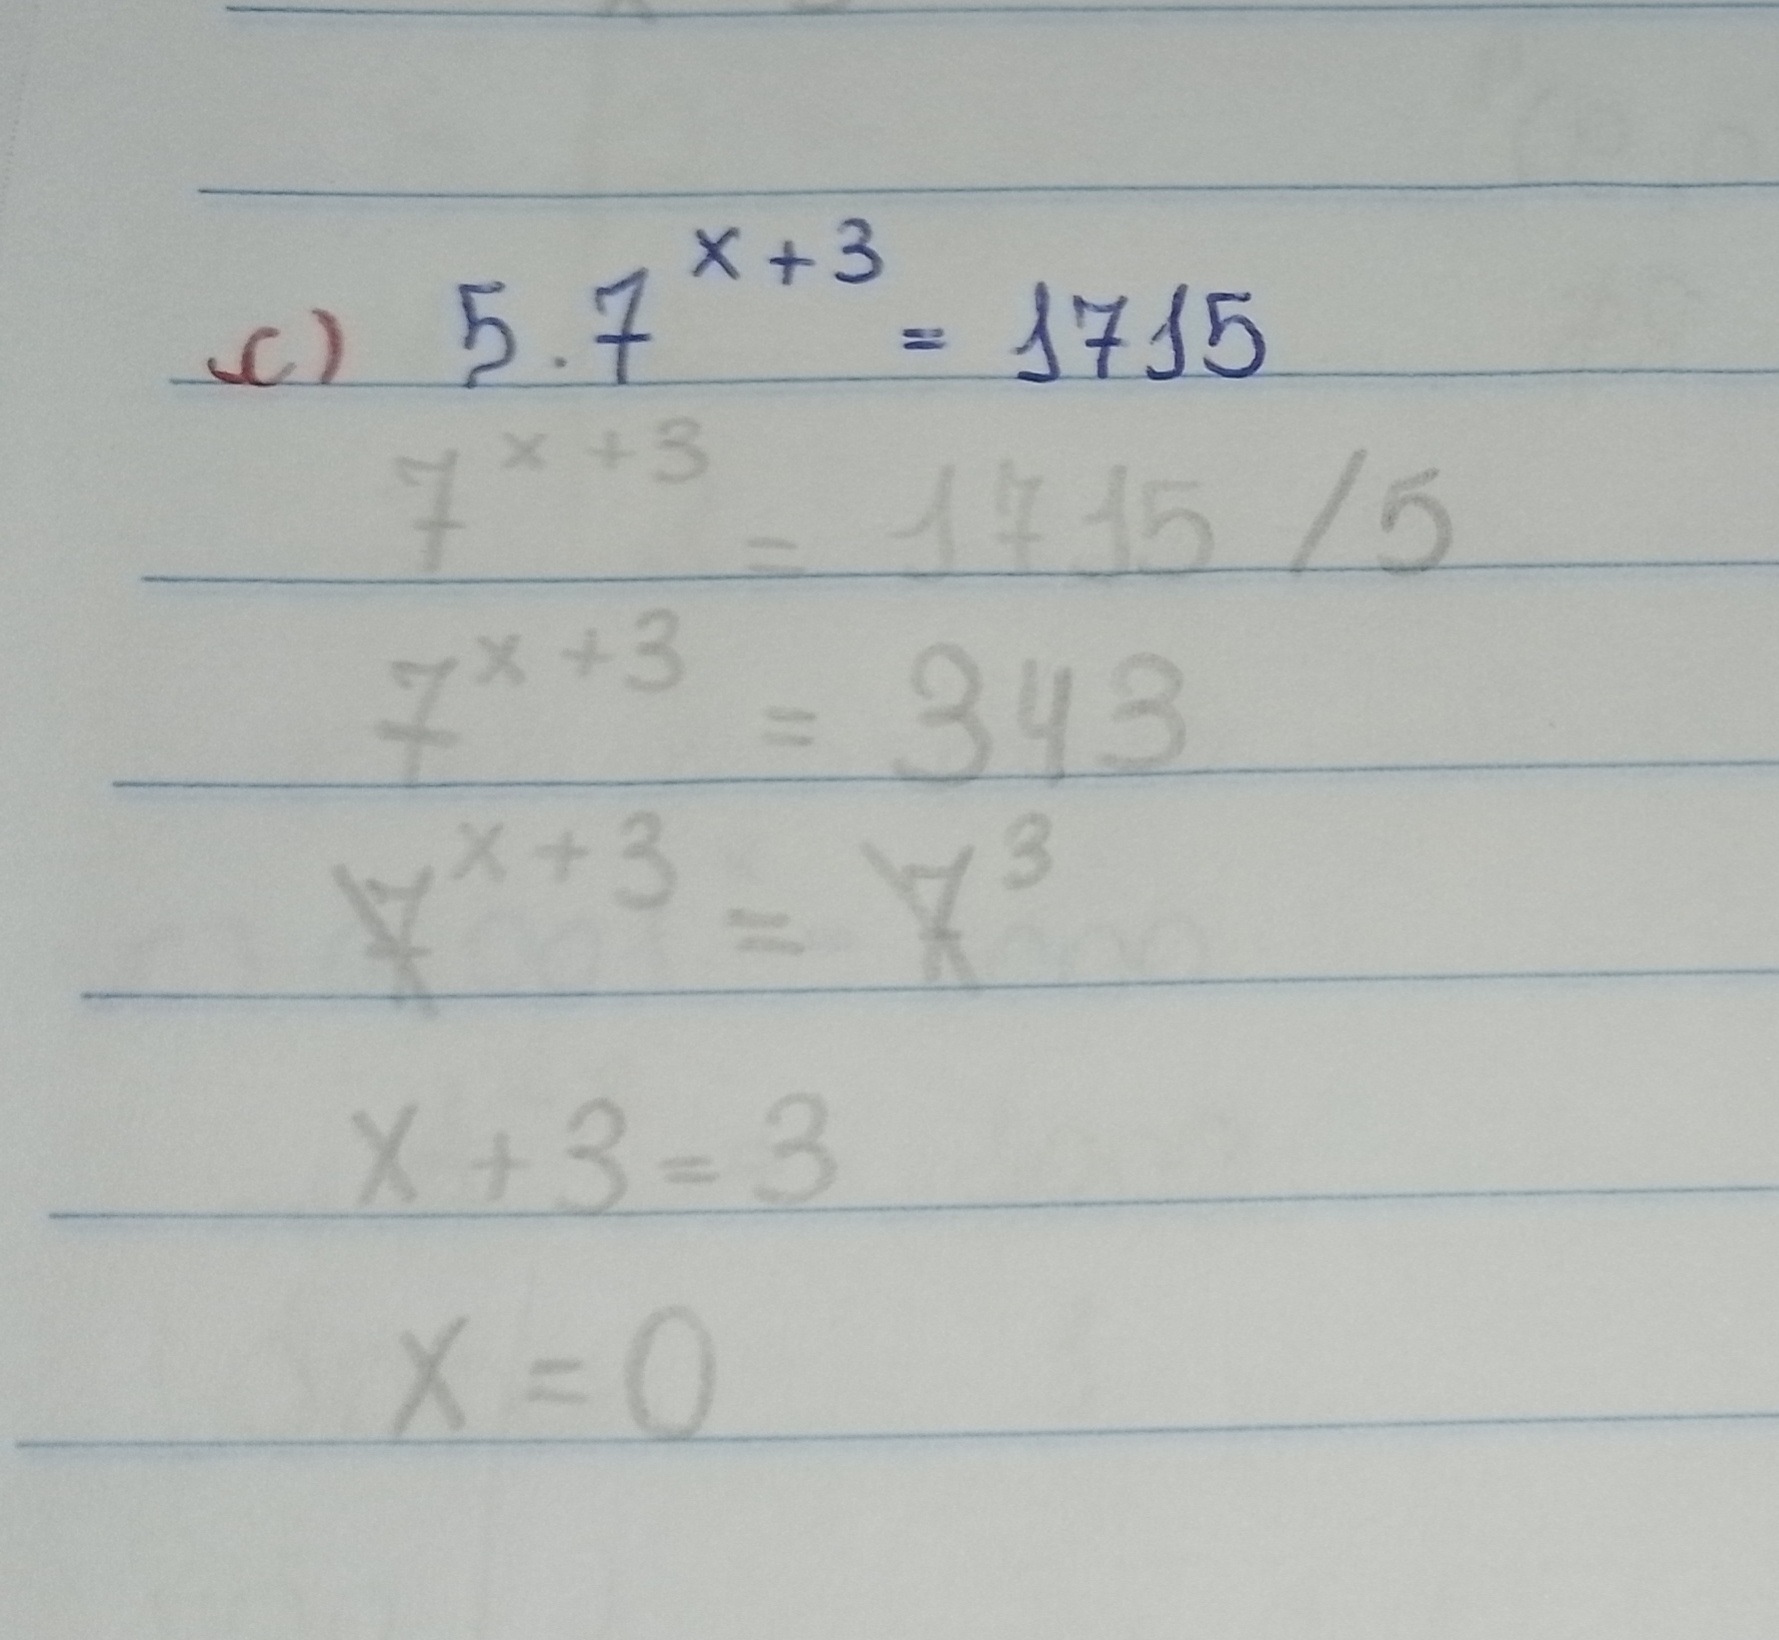 c) 5.7^{x+3} = 1715
7^{x+3} = 1715 / 5
7^{x+3} = 343
7^{x+3} = 7^{3}
x + 3 = 3
x = 0